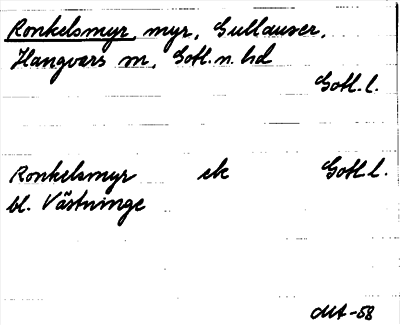 Ronkelsmyr, myr, Gullauser,
Hangvars sn, Gotl. n. hd
Gotl. l.
Ronkelsmyr ek Gotl. l.
bl. Västninge
MA -58